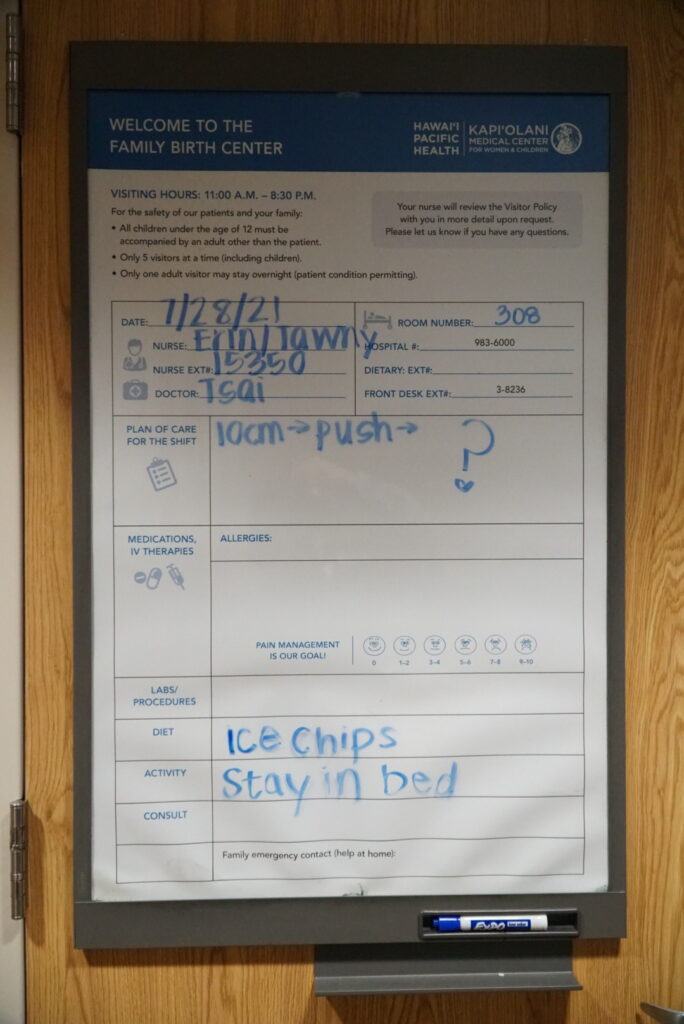 WELCOME TO THE
FAMILY BIRTH CENTER
HAWAI'I
PACIFIC
HEALTH
KAPI'OLANI
MEDICAL CENTER
FOR WOMEN & CHILDREN
VISITING HOURS: 11:00 A.M. – 8:30 P.M.
For the safety of our patients and your family:
• All children under the age of 12 must be
accompanied by an adult other than the patient.
• Only 5 visitors at a time (including children).
• Only one adult visitor may stay overnight (patient condition permitting).
Your nurse will review the Visitor Policy
with you in more detail upon request.
Please let us know if you have any questions.
DATE: 7/28/21
NURSE: Erin/Tawny
NURSE EXT#: 15350
DOCTOR: Tsai
ROOM NUMBER: 308
HOSPITAL #: 983-6000
DIETARY: EXT#:
FRONT DESK EXT#: 3-8236
PLAN OF CARE
FOR THE SHIFT
10cm → push → ?
MEDICATIONS,
IV THERAPIES
ALLERGIES:
PAIN MANAGEMENT
IS OUR GOAL!
0 1–2 3–4 5–6 7–8 9–10
LABS/
PROCEDURES
DIET
Ice Chips
ACTIVITY
Stay in bed
CONSULT
Family emergency contact (help at home):
EXPO